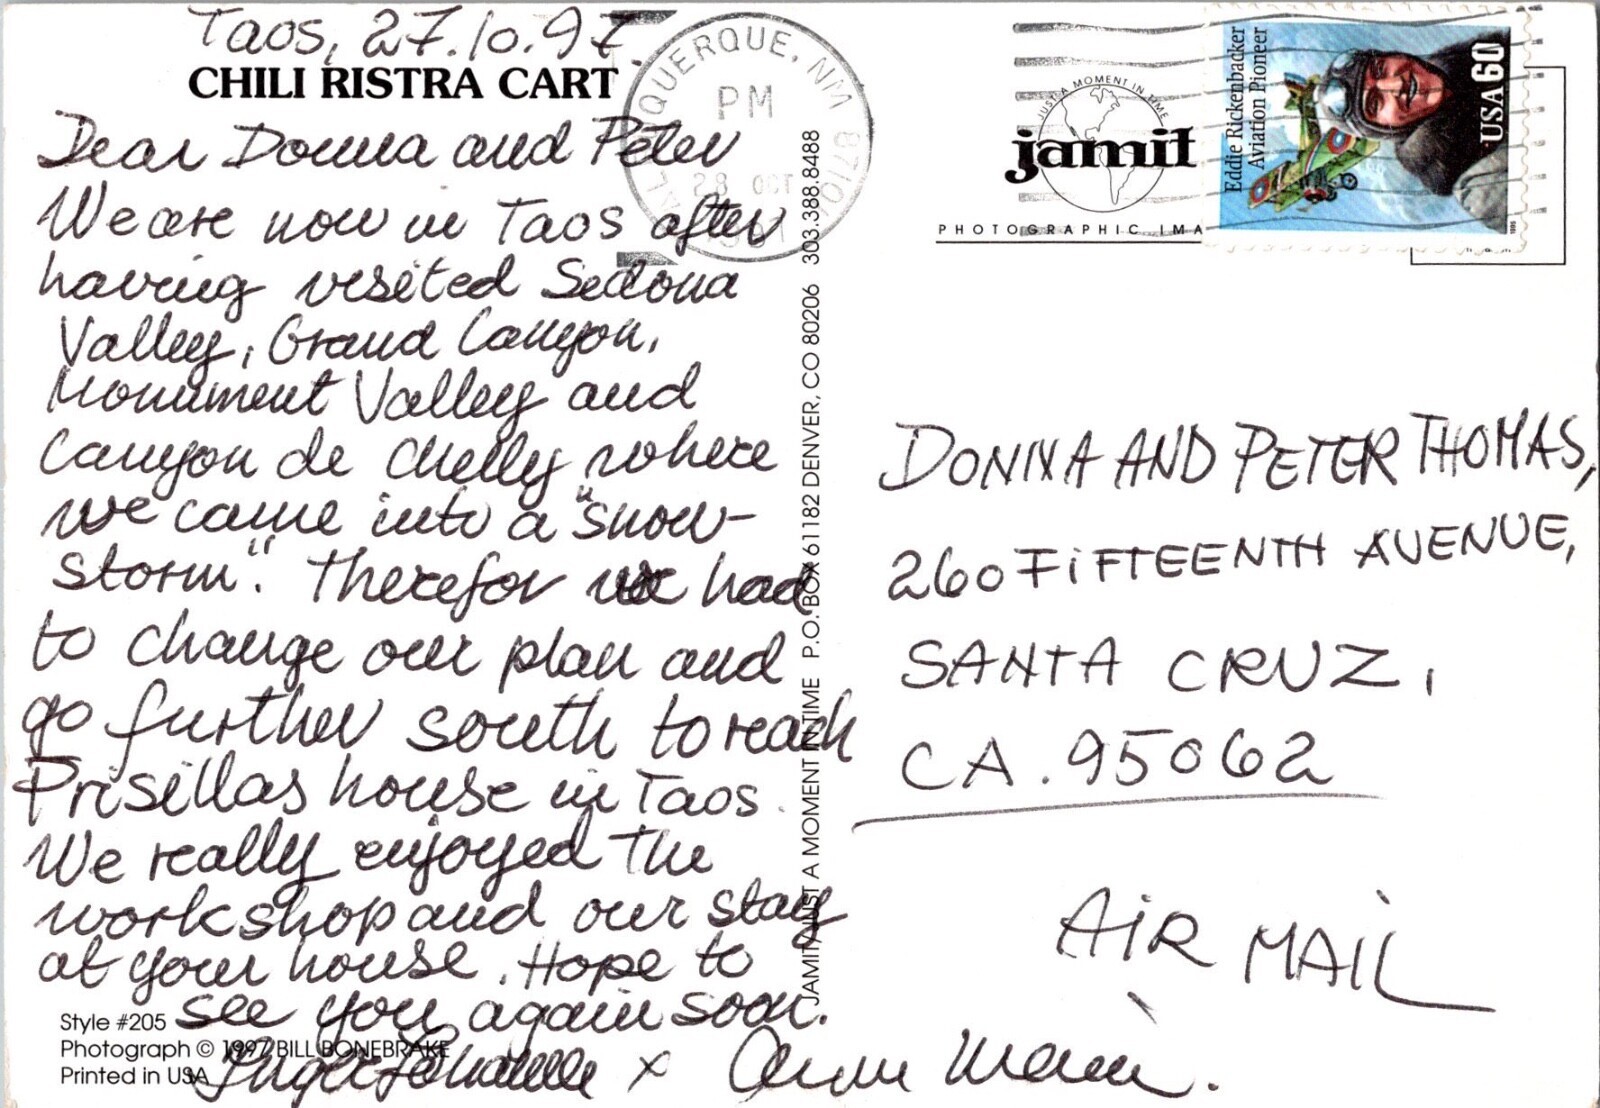 Taos, 27.10.97.
CHILI RISTRA CART
Dear Donna and Peter
We are now in Taos after
having visited Sedona
Valley, Grand Canyon,
Monument Valley and
Canyon de Chelly where
we came into a "snow-
storm". Therefor we had
to change our plan and
go further south to reach
Prisillas house in Taos.
We really enjoyed the
workshop and our stay
at your house. Hope to
see you again soon.
x Anne Marie.
Style #205
Photograph © 1997 BILL BONEBRAKE
Printed in USA
JAMIT/JUST A MOMENT IN TIME P.O. BOX 61182 DENVER, CO 80206 303.388.8488
ALBUQUERQUE, NM 87101
PM
28 OCT
JUST A MOMENT IN TIME
jamit
PHOTOGRAPHIC IMA
Eddie Rickenbacker
Aviation Pioneer
USA 60
1995
DONNA AND PETER THOMAS,
260 FIFTEENTH AVENUE,
SANTA CRUZ,
CA. 95062
AIR MAIL